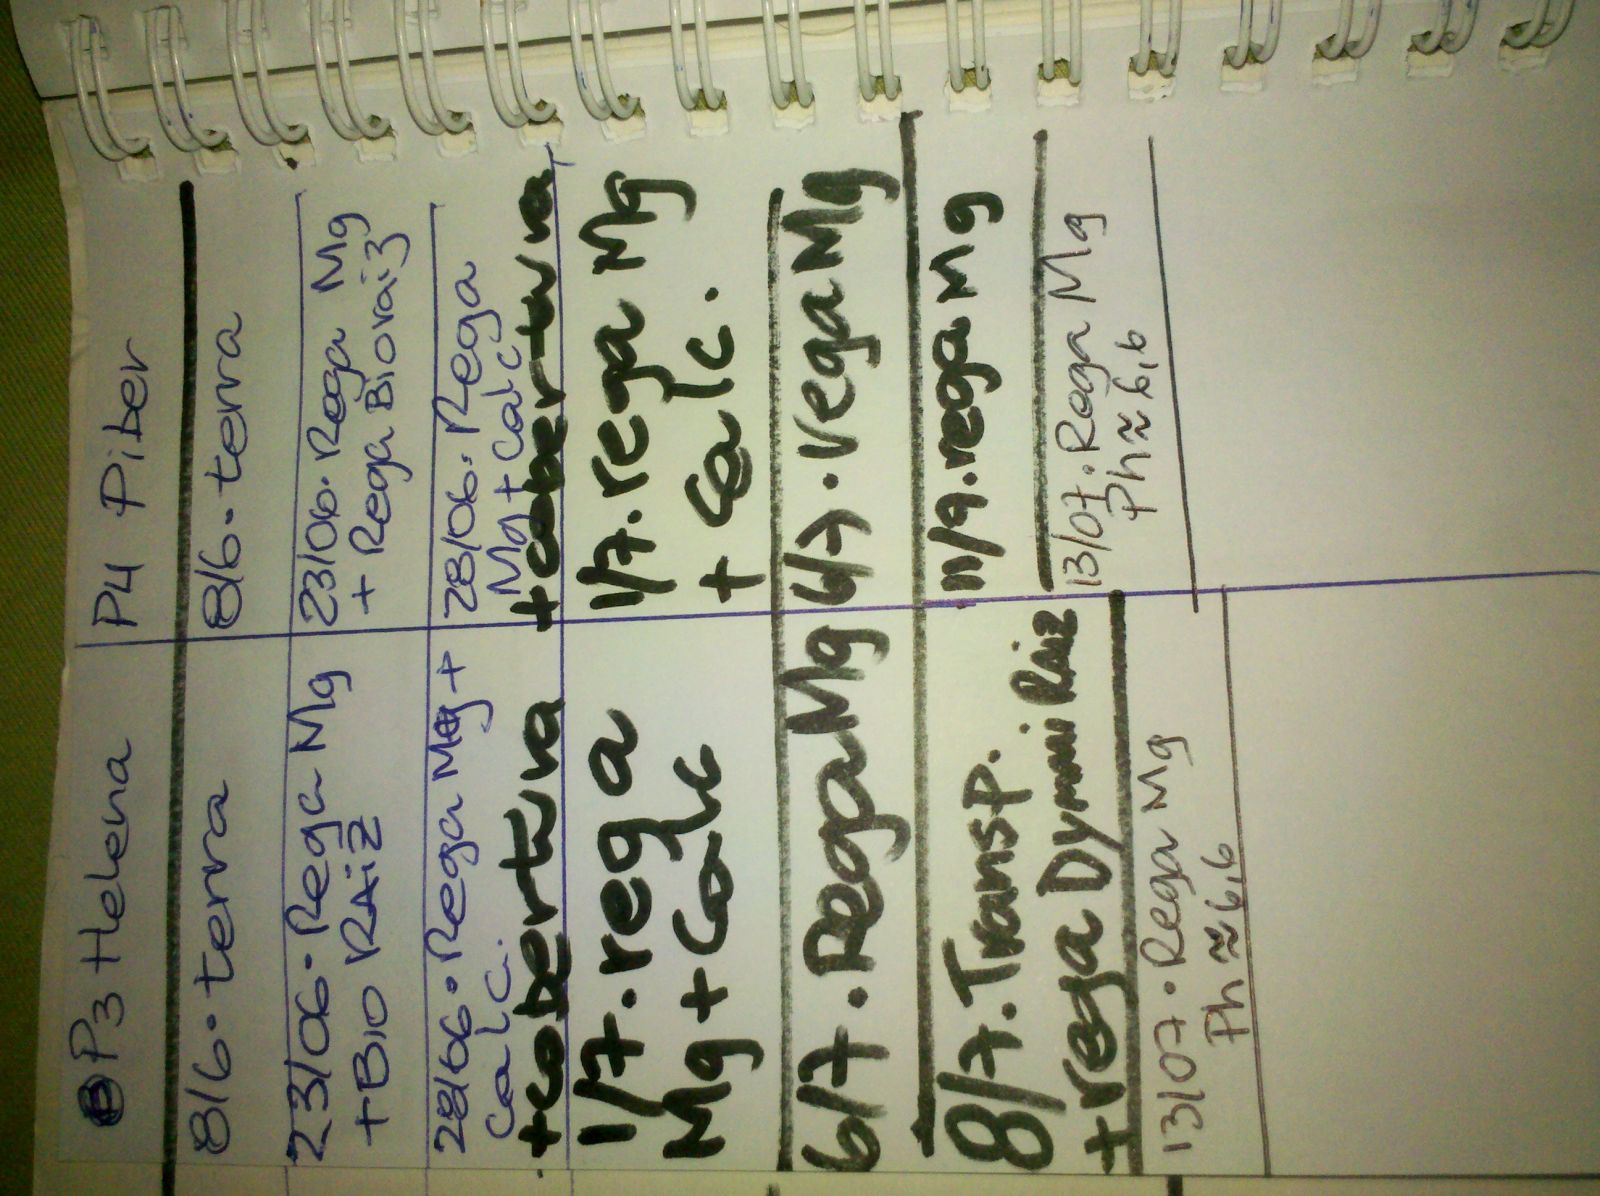 P3 Helena
8/6. terra
23/06. Rega Mg
+ BIO RAiZ
28/06. Rega Mg +
Calc.
+ cobertura
1/7. rega
Mg + Calc
6/7. Rega Mg
8/7. Transp.
+ rega Dynami Raiz
13/07. Rega Mg
Ph ≈ 6,6
P4 Piber
8/6. terra
23/06. Rega Mg
+ Rega Bioraiz
28/06. Rega
Mg + Calc
+ cobertura
1/7. rega Mg
+ Calc.
6/7. rega Mg
11/9. rega Mg
13/07. Rega Mg
Ph ≈ 6,6